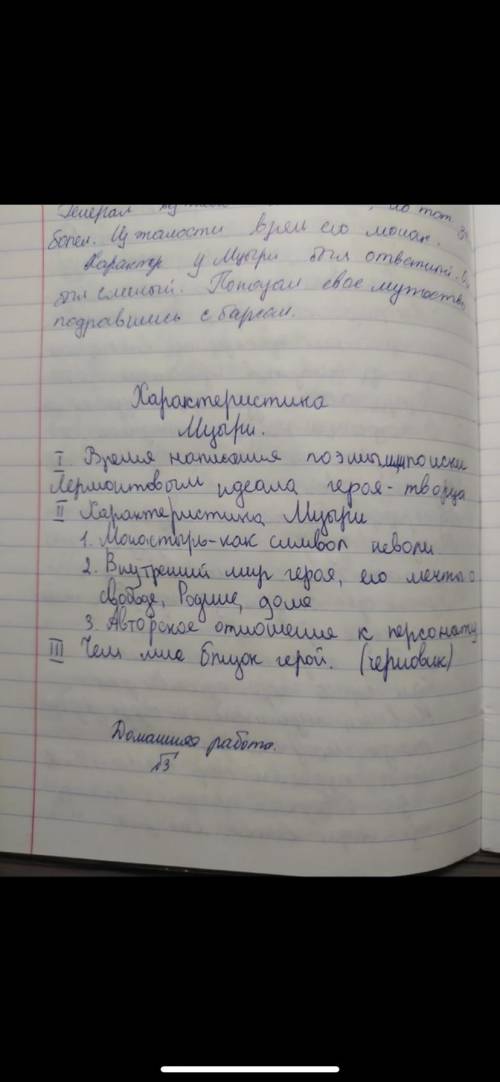 Генерал
болен. Из жалости взял его монах.
Характер у Мцыри был ответный.
был смелый. Показал свое мужество,
подравшись с барсом.
Характеристика
Мцыри.
I Время написания поэмы, поиски
Лермонтовым идеала героя-творца
II Характеристика Мцыри
1. Монастырь-как символ неволи
2. Внутренний мир героя, его мечты о
свободе, Родине, доме
3. Авторское отношение к персонажу
III Чем мне близок герой. (черновик)
Домашняя работа.